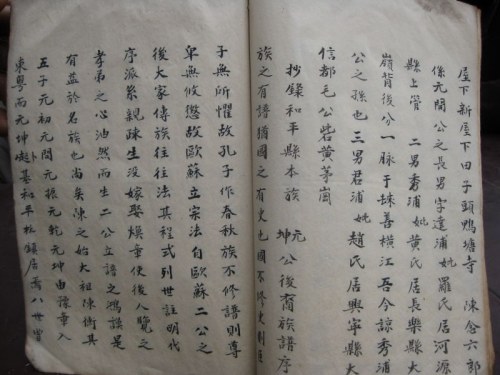 屋下新屋下田子頭鴨塘寺 陳念六郎
係元開公之長男字達浦妣羅氏居河源
縣上管 二男秀浦妣黃氏居長樂縣大
嶺背後分一脉于 善橫江吾今諒秀浦
公之孫也三男君浦妣趙氏居興寧縣大
信都毛公砦黃茅崗
抄錄和平縣本族 元坤公後裔族譜序
族之有譜猶國之有史也國不修史則
子無所懼故孔子作春秋族不修譜則尊
卑無攸懲故歐蘇立宗法自歐蘇二公之
後大家傳族往往法其程式列世註明代
序派系親踈生沒嫁娶墳垂使後人覽之
孝弟之心油然而生二公立譜之鴻謨是
有益於名族也尚矣陳之始大祖陳衛具
五子元初元開元振元乾元坤由譚平入
東粵而元坤 基和平林鎮居焉八世